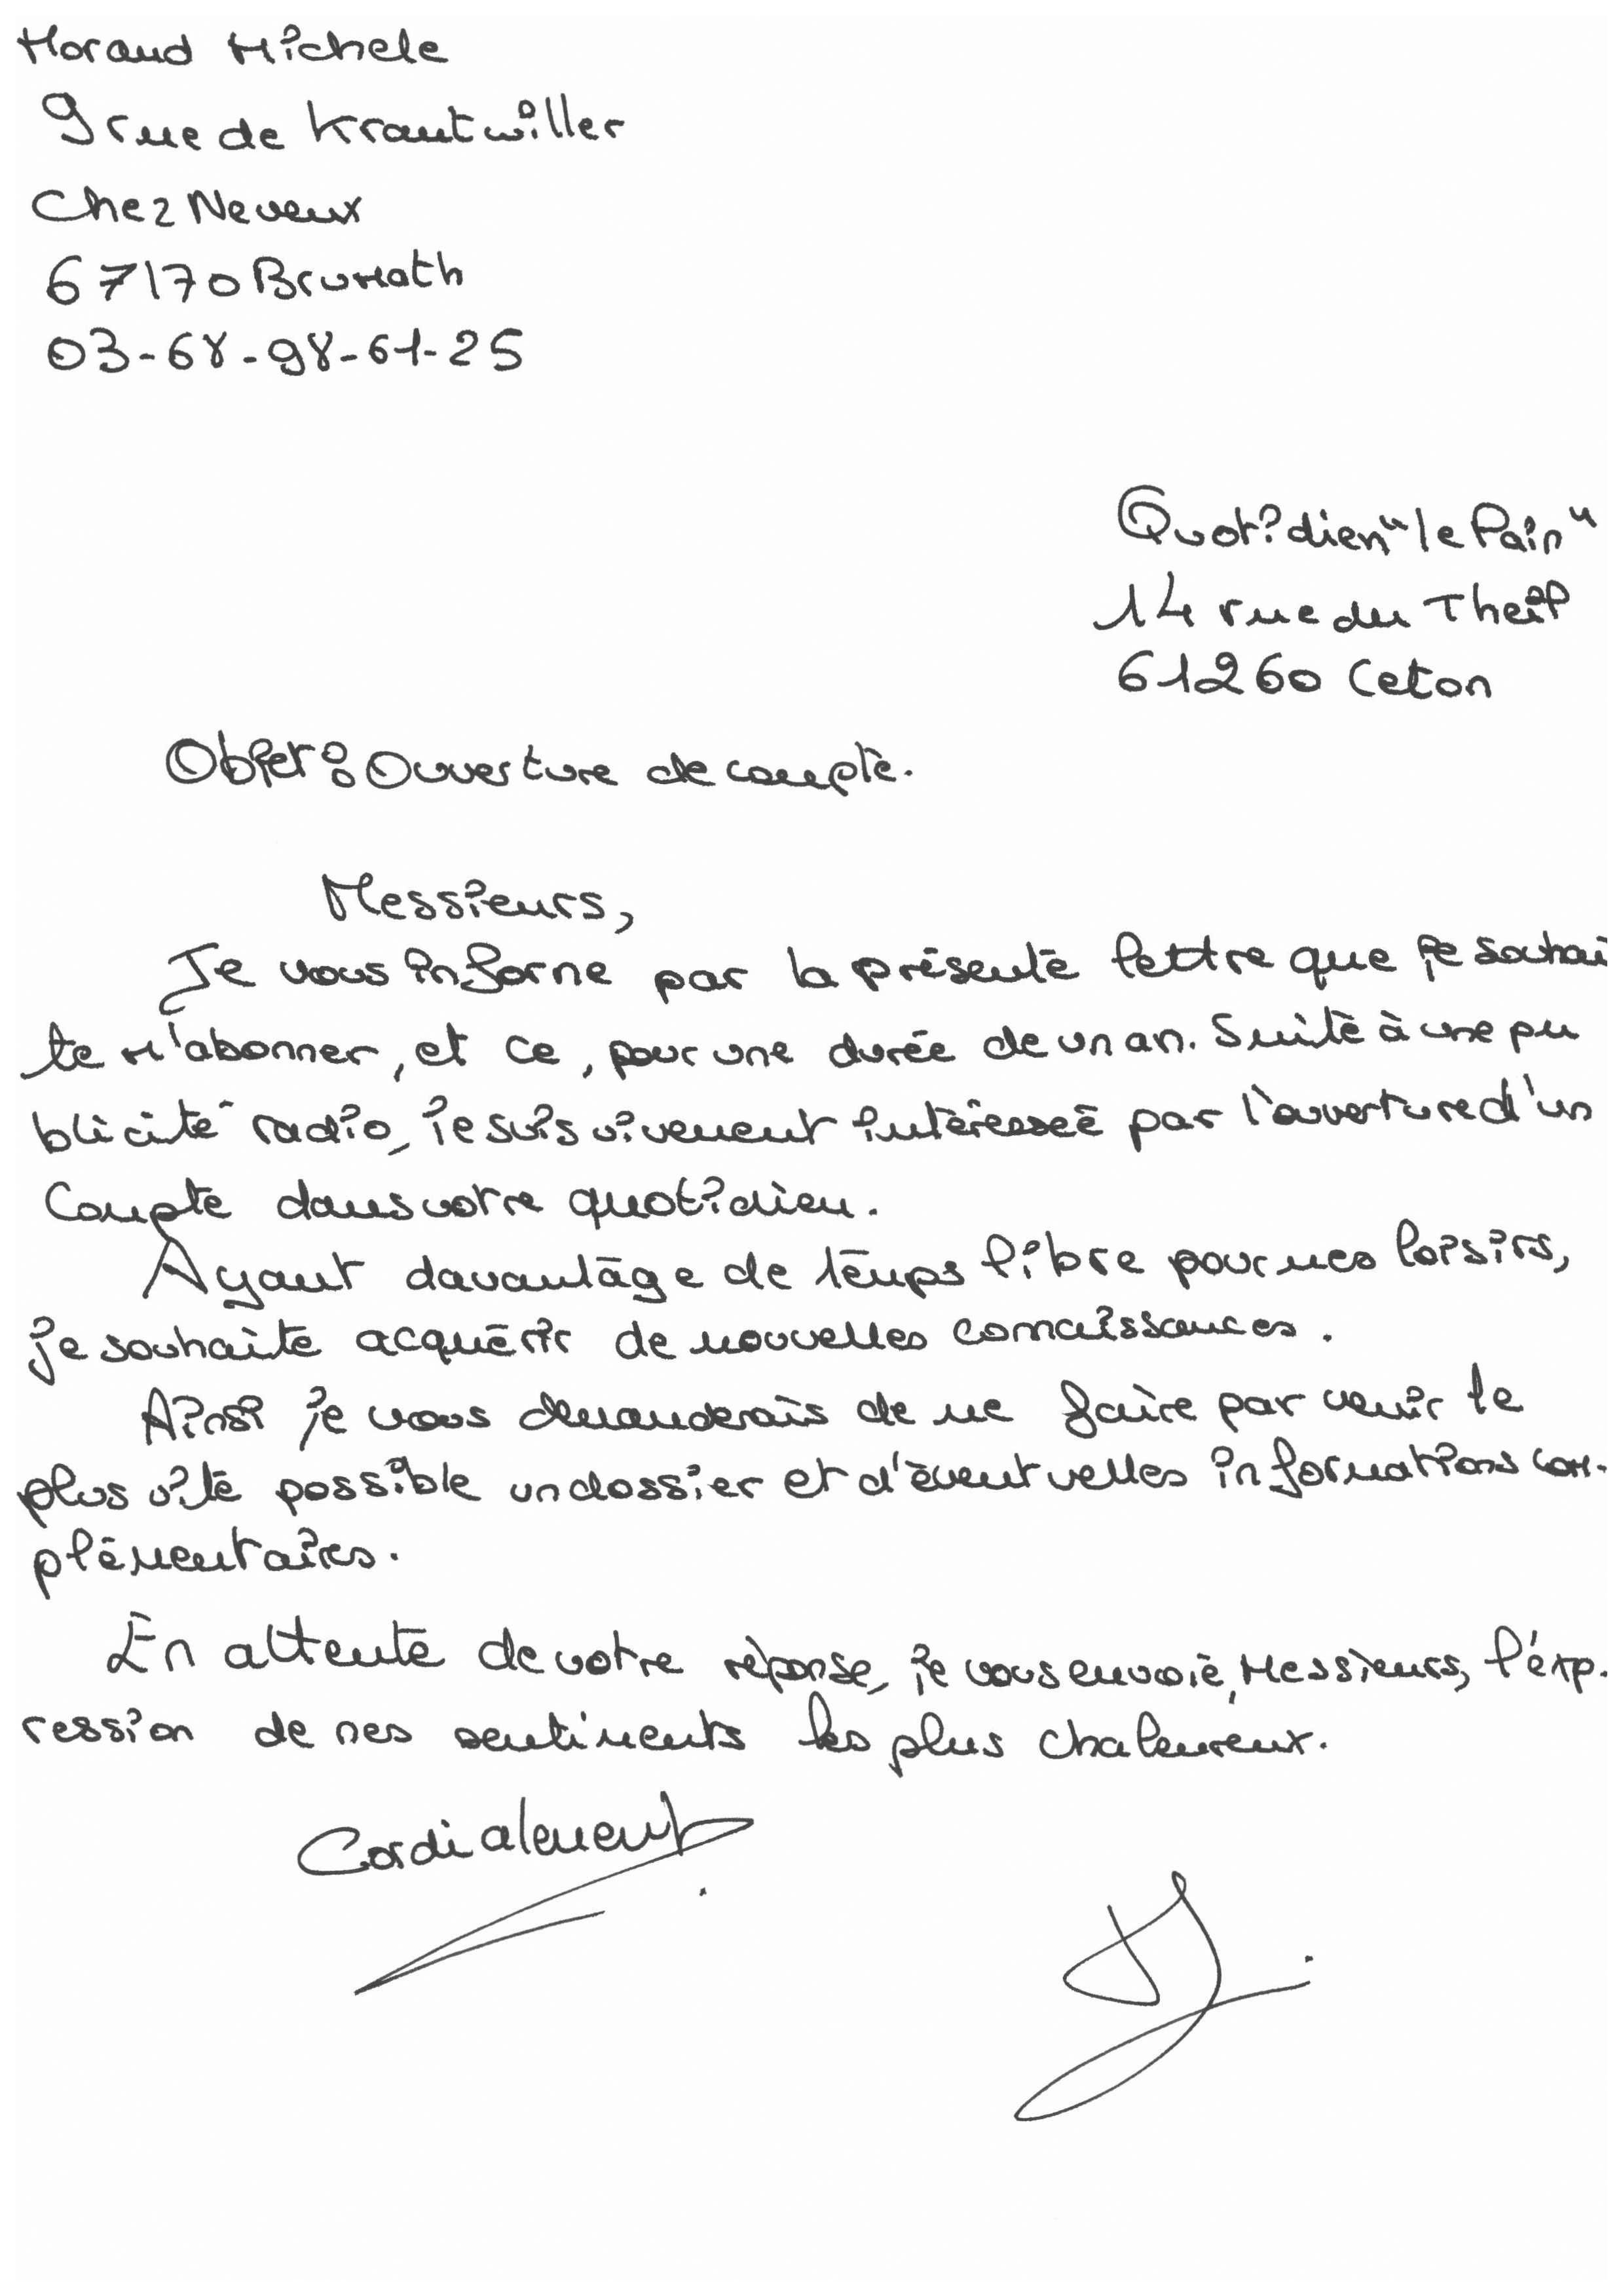 Moraud Michele
9 rue de Krautwiller
Chez Neveux
67170 Brumath
03-68-98-61-25
Quotidien "le Pain"
14 rue du Theil
61260 Ceton
Objet : Ouverture de compte.
Messieurs,
Je vous informe par la présente lettre que je souhai
te m'abonner, et ce, pour une durée de un an. Suite à une pu
blicité radio, je suis vivement intéressée par l'ouverture d'un
Compte dans votre quotidien.
Ayant davantage de temps libre pour mes loisirs,
je souhaite acquérir de nouvelles connaissances.
Ainsi je vous demanderais de me faire par venir le
plus vite possible un dossier et d'éventuelles informations com-
plémentaires.
En attente de votre réponse, je vous envoie, Messieurs, l'éxp-
ression de mes sentiments les plus chaleureux.
Cordialement.